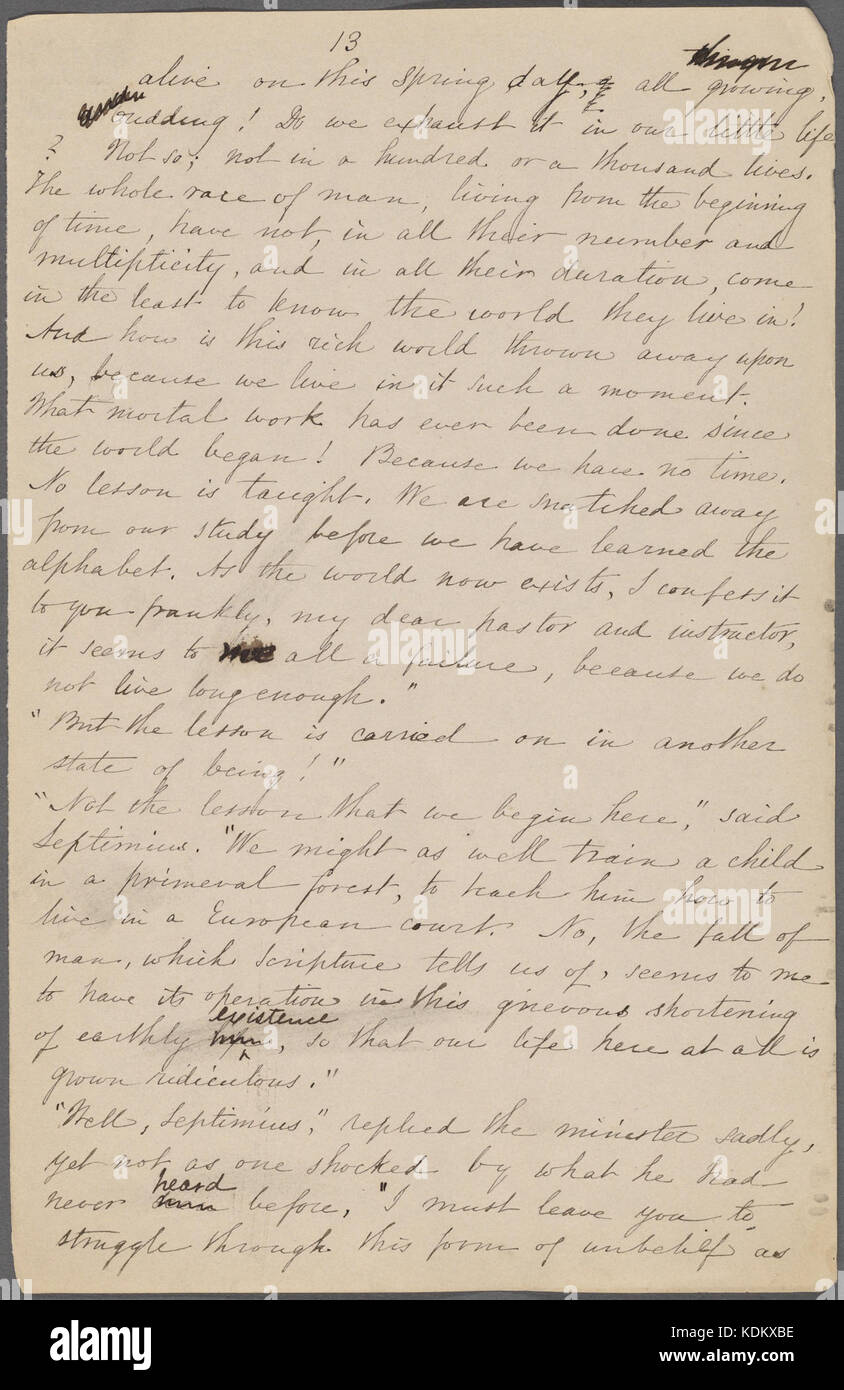 13
alive on this spring day, all growing,
budding! Do we exhaust it in our little life
? Not so; not in a hundred or a thousand lives.
The whole race of man, living from the beginning
of time, have not, in all their number and
multiplicity, and in all their duration, come
in the least to know the world they live in!
And how is this rich world thrown away upon
us, because we live in it such a moment.
What mortal work has ever been done since
the world began! Because we have no time.
No lesson is taught. We are snatched away
from our study before we have learned the
alphabet. As the world now exists, I confess it
to you frankly, my dear pastor and instructor,
it seems to me all a failure, because we do
not live long enough."
"But the lesson is carried on in another
state of being!"
"Not the lesson that we begin here," said
Septimius. "We might as well train a child
in a primeval forest, to teach him how to
live in a European court. No, the fall of
man, which Scripture tells us of, seems to me
to have its operation in this grievous shortening
of earthly existence, so that our life here at all is
grown ridiculous."
"Well, Septimius," replied the minister sadly,
yet not as one shocked by what he had
never heard before, "I must leave you to
struggle through this form of unbelief as
alamy
alamy stock photo
KDKXBE
www.alamy.com